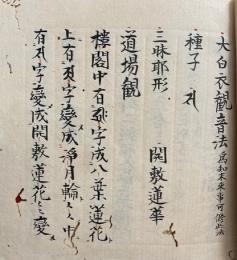 大白衣観音法 為知未来事可修此法
種子
三昧耶形 開敷蓮華
道場観
樓閣中有 字成八葉蓮花
上有 字變成浄月輪々中
有 字變成開敷蓮花々變